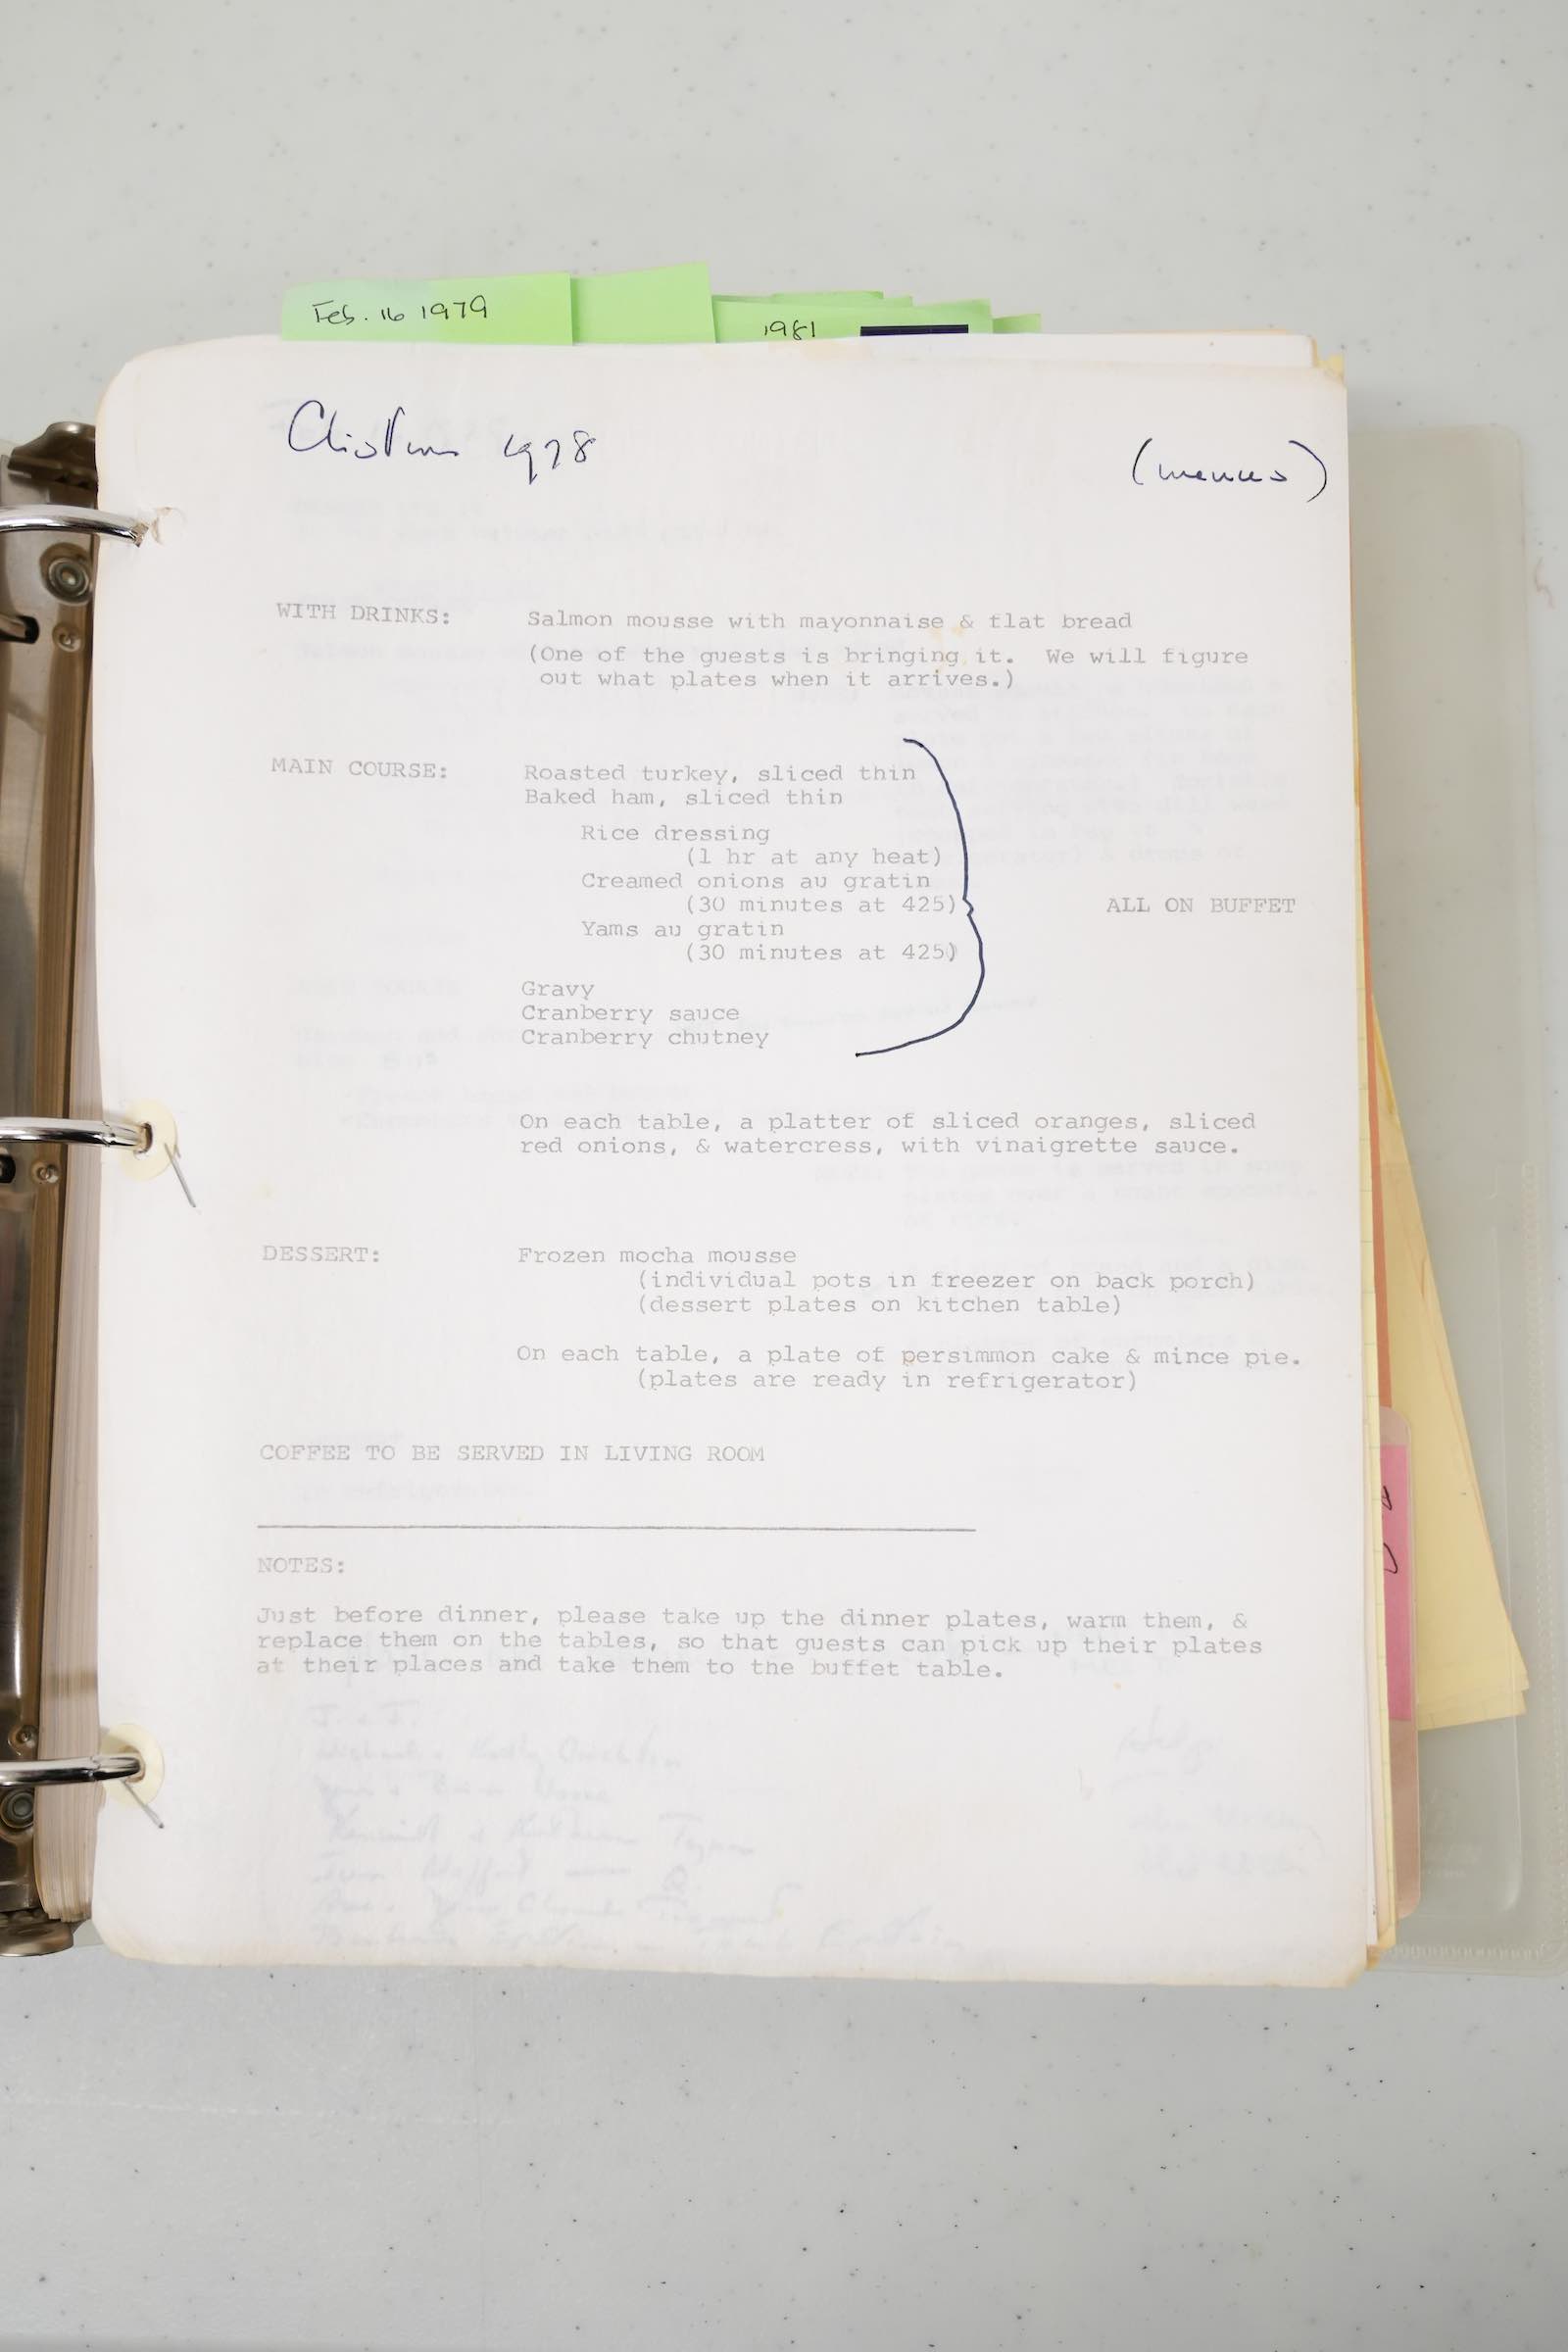 Feb. 16 1979
1981
Christmas 1978
(menus)
WITH DRINKS: Salmon mousse with mayonnaise & flat bread
(One of the guests is bringing it. We will figure
out what plates when it arrives.)
MAIN COURSE: Roasted turkey, sliced thin
Baked ham, sliced thin
Rice dressing
(1 hr at any heat)
Creamed onions au gratin
(30 minutes at 425)
ALL ON BUFFET
Yams au gratin
(30 minutes at 425)
Gravy
Cranberry sauce
Cranberry chutney
On each table, a platter of sliced oranges, sliced
red onions, & watercress, with vinaigrette sauce.
DESSERT: Frozen mocha mousse
(individual pots in freezer on back porch)
(dessert plates on kitchen table)
On each table, a plate of persimmon cake & mince pie.
(plates are ready in refrigerator)
COFFEE TO BE SERVED IN LIVING ROOM
NOTES:
Just before dinner, please take up the dinner plates, warm them, &
replace them on the tables, so that guests can pick up their plates
at their places and take them to the buffet table.